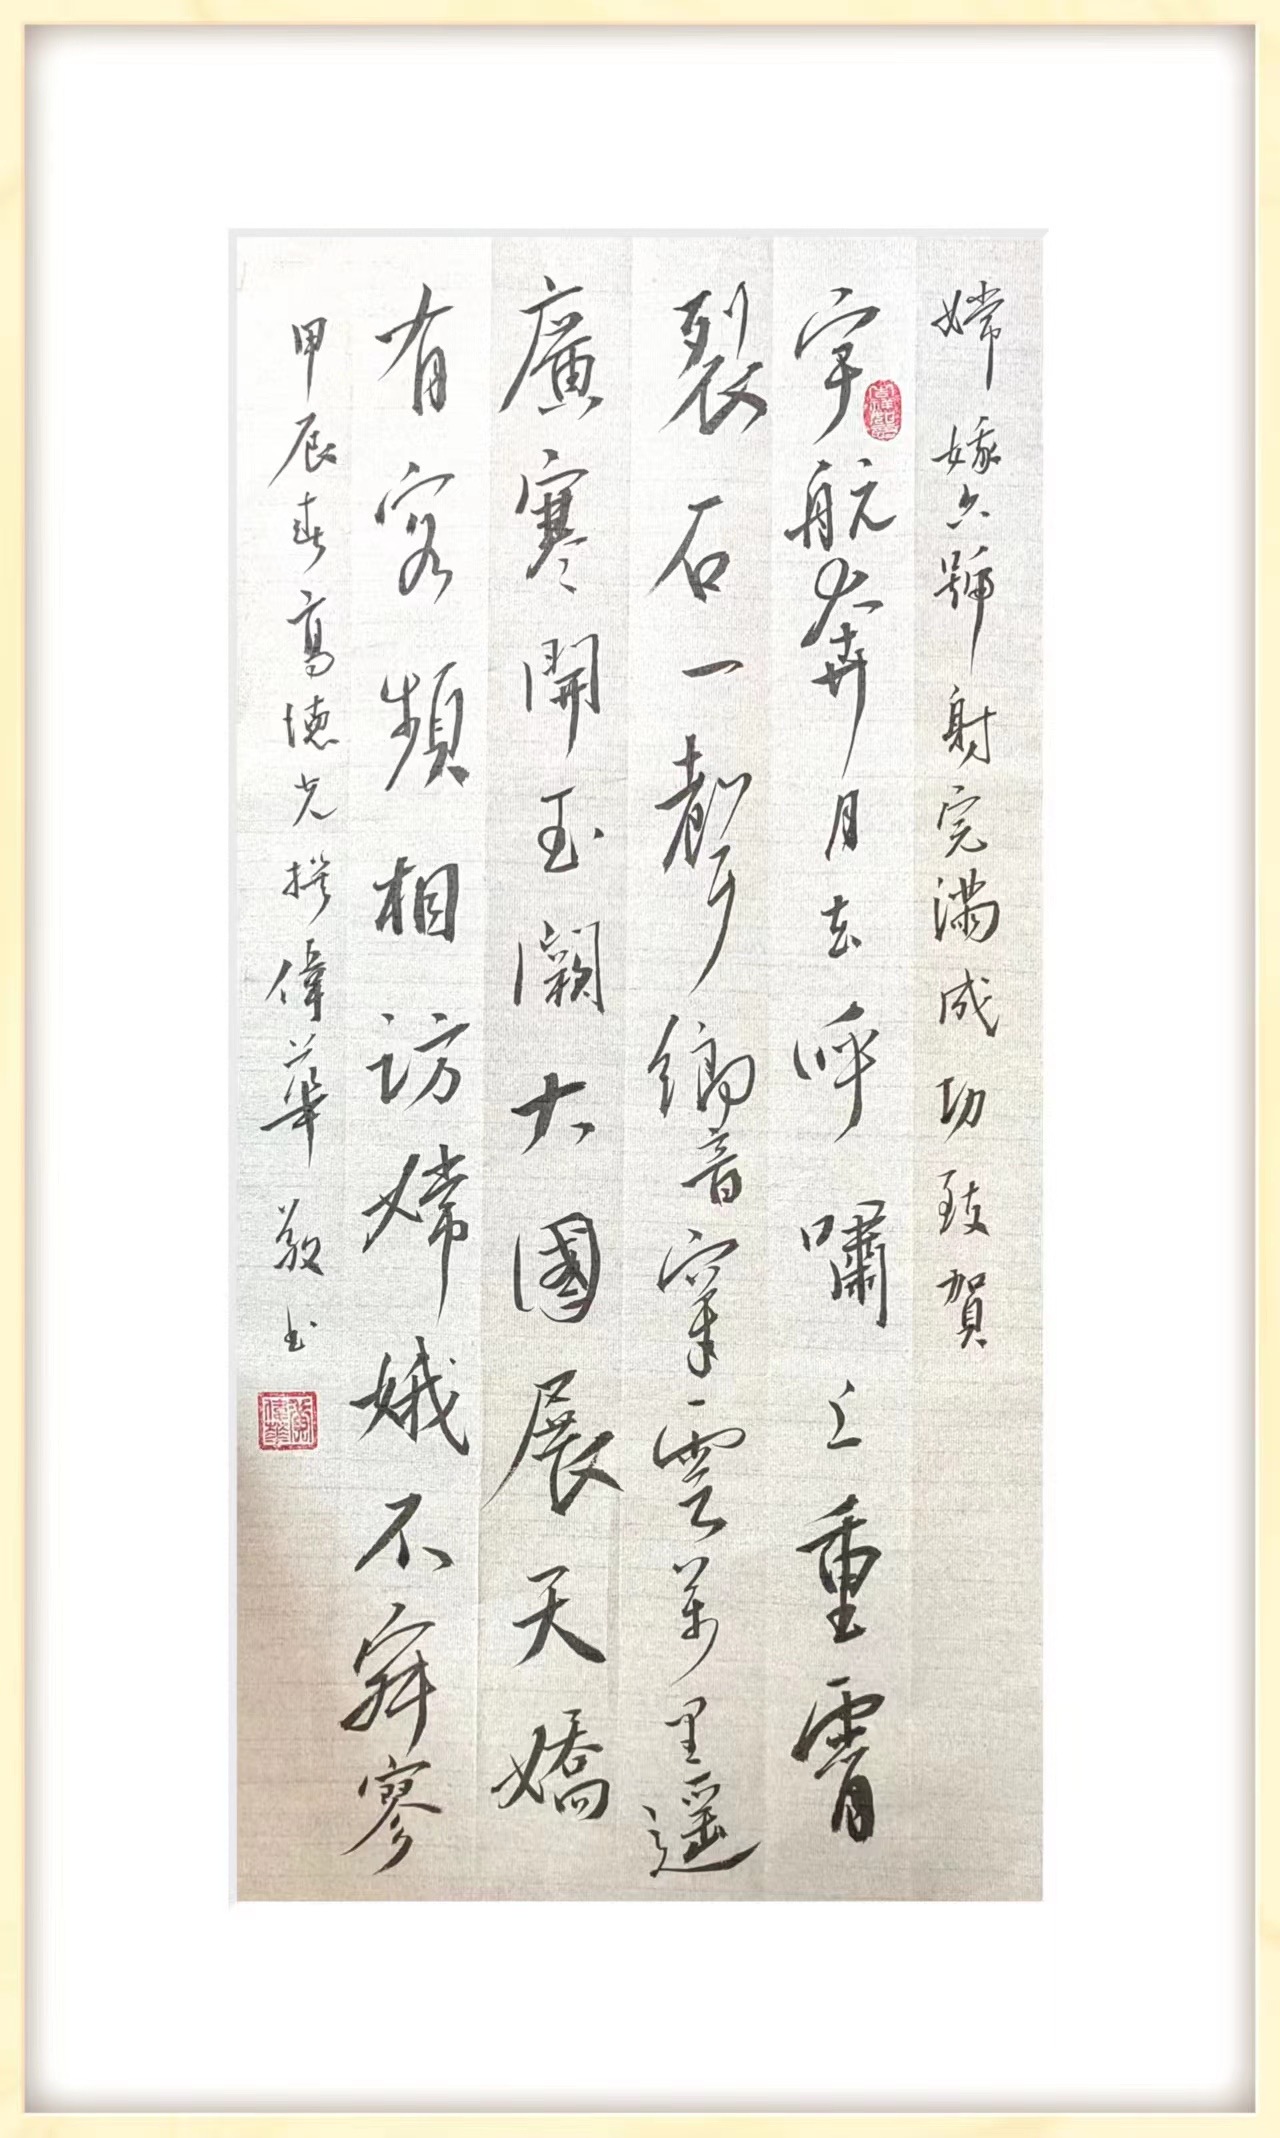 嫦娥六號射完滿成功致賀
宇航奔月去呼嘯上重霄
裂石一聲響穿雲萬里遥
廣寒開玉闕大國展天嬌
有客頻相訪嫦娥不寂寥
甲辰春高德光撰偉華敬书